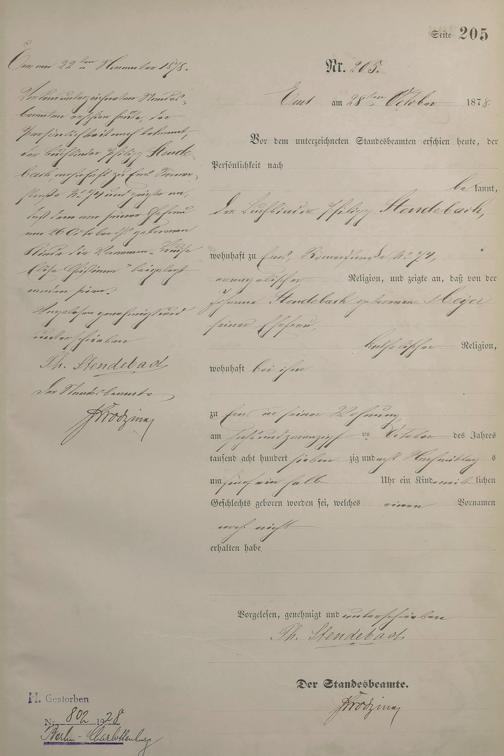 Seite 205
Nr. 205.
Ems am 28ten October 1878
Vor dem unterzeichneten Standesbeamten erschien heute, der
Persönlichkeit nach
bekannt,
der Buchbinder Philipp Stendebach,
wohnhaft zu Ems, Römerstraße No 74,
evangelischer Religion, und zeigte an, daß von der
Johanna Stendebach geborenen Meyer
seiner Ehefrau,
katholischer Religion,
wohnhaft bei ihm
zu Ems in seiner Wohnung
am sechsundzwanzigsten October des Jahres
tausend acht hundert siebenzig und acht Nachmittags
um ein halb Uhr ein Kind weiblichen
Geschlechts geboren worden sei, welches einen Vornamen
noch nicht
erhalten habe
Vorgelesen, genehmigt und unterschrieben
Ph. Stendebach
Der Standesbeamte.
Ems am 22ten November 1878.
Vor dem unterzeichneten Standes-
beamten erschien heute, der
Persönlichkeit nach bekannt,
der Buchbinder Philipp Stende-
bach wohnhaft zu Ems Römer-
straße No 74 und zeigte an,
daß dem von seiner Ehefrau
am 26 October geborenen
Kinde die Vornamen Luise
beigelegt
worden seien.
Vorgelesen genehmigt und
unterschrieben
Ph. Stendebach
Der Standesbeamte
H. Gestorben
Nr. 802 1928
Berlin-Charlottenburg